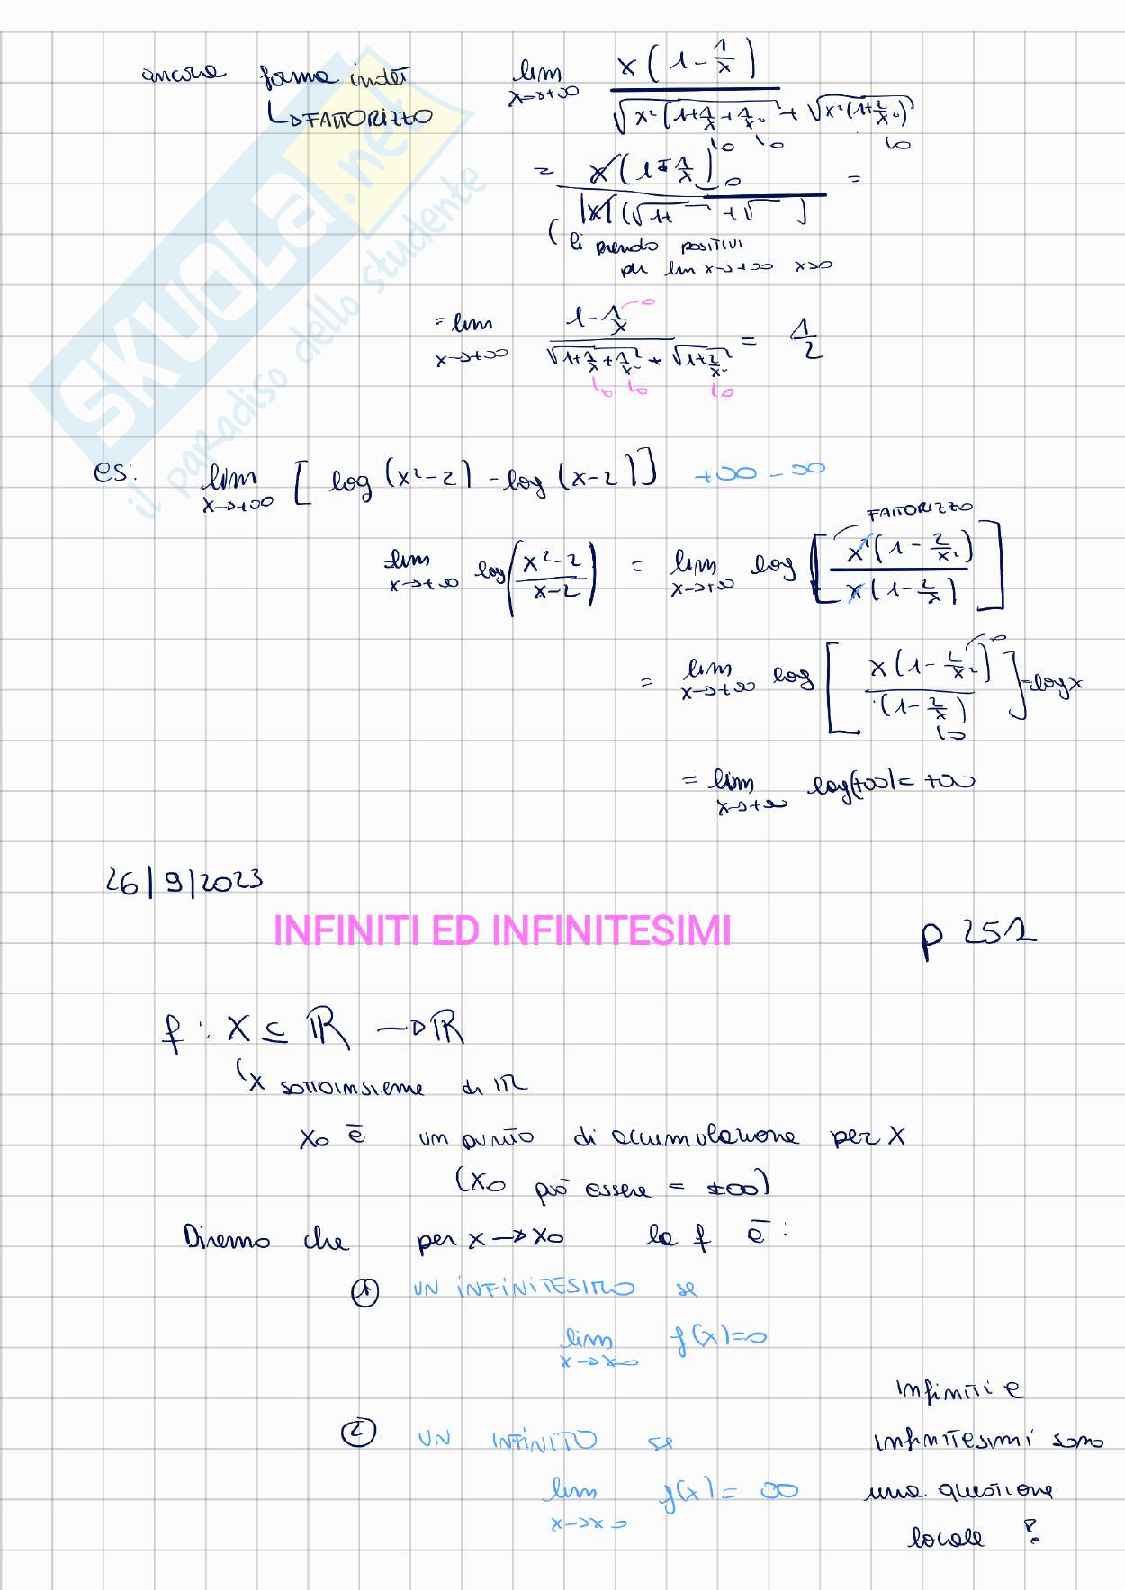 ancora forma indet lim x→+∞ x(1-1/x) / √x²(1+1/x+1/x²) + √x²(1+2/x²)
↳FATTORIZZO →0 →0 →0
= x(1-1/x)→0 / |x|(√1+ + √ ) =
(li prendo positivi
per lim x→+∞ x>0
= lim x→+∞ 1-1/x→0 / √1+1/x+1/x² + √1+2/x² = 1/2
→0 →0 →0
es: lim x→+∞ [log(x²-2) - log(x-2)] +∞ -∞
FATTORIZZO
lim x→+∞ log(x²-2 / x-2) = lim x→+∞ log[x²(1-2/x²) / x(1-2/x)]
= lim x→+∞ log[x(1-2/x²)→0 / (1-2/x)→0] = log x
= lim x→+∞ log(+∞) = +∞
26/9/2023
INFINITI ED INFINITESIMI p 251
f : X ⊆ ℝ → ℝ
X sottoinsieme di ℝ
x₀ è un punto di accumulazione per X
(x₀ può essere = ±∞)
Diremo che per x→x₀ la f è:
① UN INFINITESIMO se
lim x→x₀ f(x)=0
② UN INFINITO se
lim x→x₀ f(x)= ∞
Infiniti e
infinitesimi sono
una questione
locale
SKUOLA.net
il paradiso dello studente